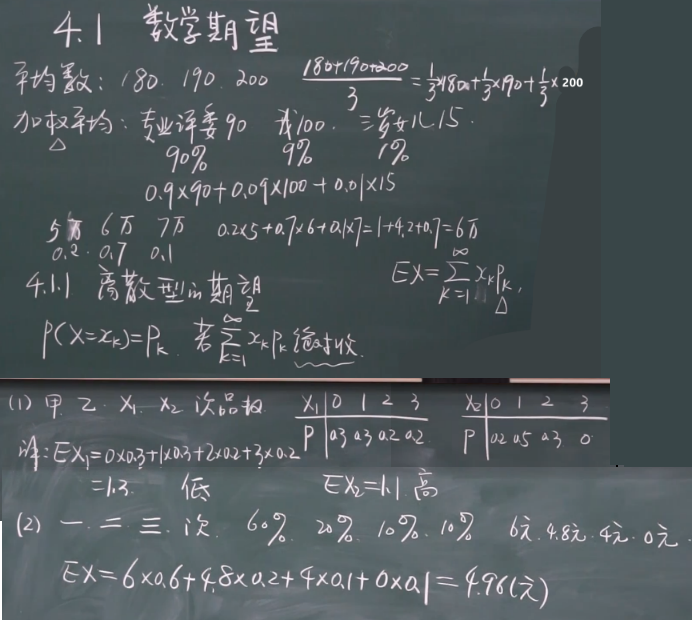 4.1 数学期望
平均数: 180. 190. 200 (180+190+200)/3 = 1/3×180+1/3×190+1/3×200
加权平均: 专业评委90 我100. 三岁女儿15.
90% 9% 1%
0.9×90+0.09×100+0.01×15
5万 6万 7万 0.2×5+0.7×6+0.1×7=1+4.2+0.7=6万
0.2. 0.7 0.1
4.1.1 离散型的期望 EX=∑_{k=1}^{∞} x_k p_k.
P(X=x_k)=P_k. 若∑_{k=1}^{∞} x_k p_k 绝对收.
(1) 甲 乙. X_1 X_2 次品数 X_1 0 1 2 3 X_2 0 1 2 3
P 0.3 0.3 0.2 0.2 P 0.2 0.5 0.3 0
解: EX_1=0×0.3+1×0.3+2×0.2+3×0.2
=1.3 低 EX_2=1.1 高
(2) 一. 二 三. 次. 60% 20% 10% 10% 6元. 4.8元. 4元. 0元.
EX=6×0.6+4.8×0.2+4×0.1+0×0.1=4.96(元)